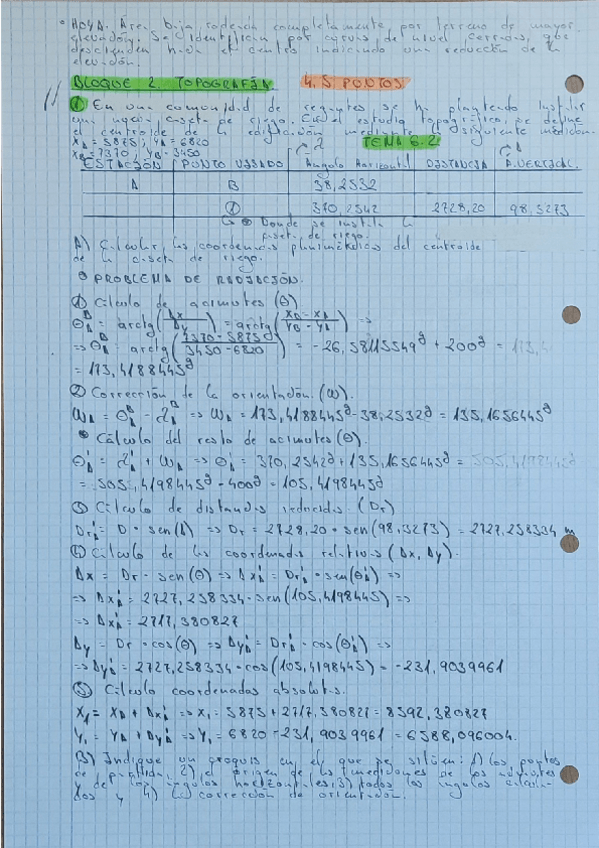 • HOYA. Área baja rodeada completamente por terreno de mayor
elevación. Se identifican por curvas de nivel cerradas, que
descienden hacia el centro indicando una reducción de la
elevación.
BLOQUE 2. TOPOGRAFÍA 4.5 PUNTOS
① En una comunidad de regantes se ha planteado instalar
una nueva caseta de riego. Con el estudio topográfico se define
el centroide de la edificación mediante la siguiente medición.
XA = 5875; YA = 6820 TEMA 6.2
XB = 7370; YB = 3450
ESTACIÓN PUNTO VISADO Angulo Horizontal DISTANCIA A. VERTICAL
A B 38,2532
① 370,2542 2728,20 98,3273
Donde se instala la
caseta de riego.
A) Calcular las coordenadas planimétricas del centroide
de la caseta de riego.
• PROBLEMA DE RADIACIÓN.
① Cálculo de acimutes (θ)
θ_A^B = arctg(Δx/Δy) = arctg(XB - XA/YB - YA) =>
=> θ_A^B = arctg(7370-5875/3450-6820) = -26,58115549g + 200g = 173,4
= 173,4188445g
② Corrección de la orientación. (W).
W_A = θ_A^B - L_A^B => W_A = 173,4188445g - 38,2532g = 135,1656445g
• Cálculo del resto de acimutes (θ).
θ_A^1 = L_A^1 + W_A => θ_A^1 = 370,2542g + 135,1656445g = 505,4198445g
= 505,4198445g - 400g = 105,4198445g
③ Cálculo de distancias reducidas. (Dr)
Dr_A^1 = D · sen(Δ) => Dr = 2728,20 · sen(98,3273) = 2727,258334 m
④ Cálculo de las coordenadas relativas (Δx, Δy).
Δx = Dr · sen(θ) => Δx_A^1 = Dr_A^1 · sen(θ_A^1) =>
=> Δx_A^1 = 2727,258334 · sen(105,4198445) =>
=> Δx_A^1 = 2717,380827
Δy = Dr · cos(θ) => Δy_A^1 = Dr_A^1 · cos(θ_A^1) =>
=> Δy_A^1 = 2727,258334 · cos(105,4198445) = -231,9039961
⑤ Cálculo coordenadas absolutas.
X1 = XA + Δx_A^1 => X1 = 5875 + 2717,380827 = 8592,380827
Y1 = YA + Δy_A^1 => Y1 = 6820 - 231,9039961 = 6588,096004.
B) Indique un croquis en el que se sitúen: 1) los puntos
de partida, 2) el origen de las mediciones de los acimutes
y de los ángulos horizontales, 3) todos los ángulos calcula-
dos y 4) la corrección de orientación.